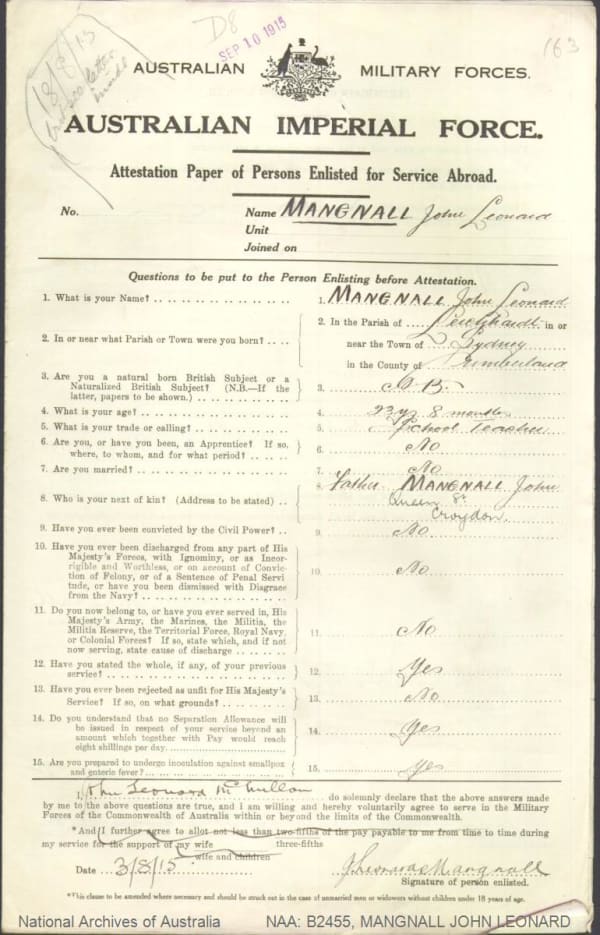 D8
SEP 10 1915
163
18/8/15
AUSTRALIAN MILITARY FORCES.
AUSTRALIAN IMPERIAL FORCE.
Attestation Paper of Persons Enlisted for Service Abroad.
No. Name MANGNALL John Leonard
Unit
Joined on
Questions to be put to the Person Enlisting before Attestation.
1. What is your Name? 1. MANGNALL John Leonard
2. In or near what Parish or Town were you born? 2. In the Parish of Leichhardt in or
near the Town of Sydney
in the County of Cumberland
3. Are you a natural born British Subject or a
Naturalized British Subject? (N.B.—If the
latter, papers to be shown.) 3. N B
4. What is your age? 4. 23 yrs 8 months
5. What is your trade or calling? 5. School Teacher
6. Are you, or have you been, an Apprentice? If so,
where, to whom, and for what period? 6. No
7. Are you married? 7. No
8. Who is your next of kin? (Address to be stated) 8. Father MANGNALL John
Queen St
Croydon.
9. Have you ever been convicted by the Civil Power? 9. No
10. Have you ever been discharged from any part of His
Majesty's Forces, with Ignominy, or as Incor-
rigible and Worthless, or on account of Convic-
tion of Felony, or of a Sentence of Penal Servi
tude, or have you been dismissed with Disgrace
from the Navy? 10. No
11. Do you now belong to, or have you ever served in, His
Majesty's Army, the Marines, the Militia, the
Militia Reserve, the Territorial Force, Royal Navy,
or Colonial Forces? If so, state which, and if not
now serving, state cause of discharge 11. No
12. Have you stated the whole, if any, of your previous
service? 12. Yes
13. Have you ever been rejected as unfit for His Majesty's
Service? If so, on what grounds? 13. No
14. Do you understand that no Separation Allowance will
be issued in respect of your service beyond an
amount which together with Pay would reach
eight shillings per day. 14. Yes
15. Are you prepared to undergo inoculation against smallpox
and enteric fever? 15. Yes
I, John Leonard do solemnly declare that the above answers made
by me to the above questions are true, and I am willing and hereby voluntarily agree to serve in the Military
Forces of the Commonwealth of Australia within or beyond the limits of the Commonwealth.
*And I further agree to allot not less than two-fifths of the pay payable to me from time to time during
my service for the support of my wife three-fifths
wife and children
Date 3/8/15 J Leonard Mangnall
Signature of person enlisted.
*This clause to be amended where necessary and should be struck out in the case of unmarried men or widowers without children under 18 years of age.
National Archives of Australia NAA: B2455, MANGNALL JOHN LEONARD